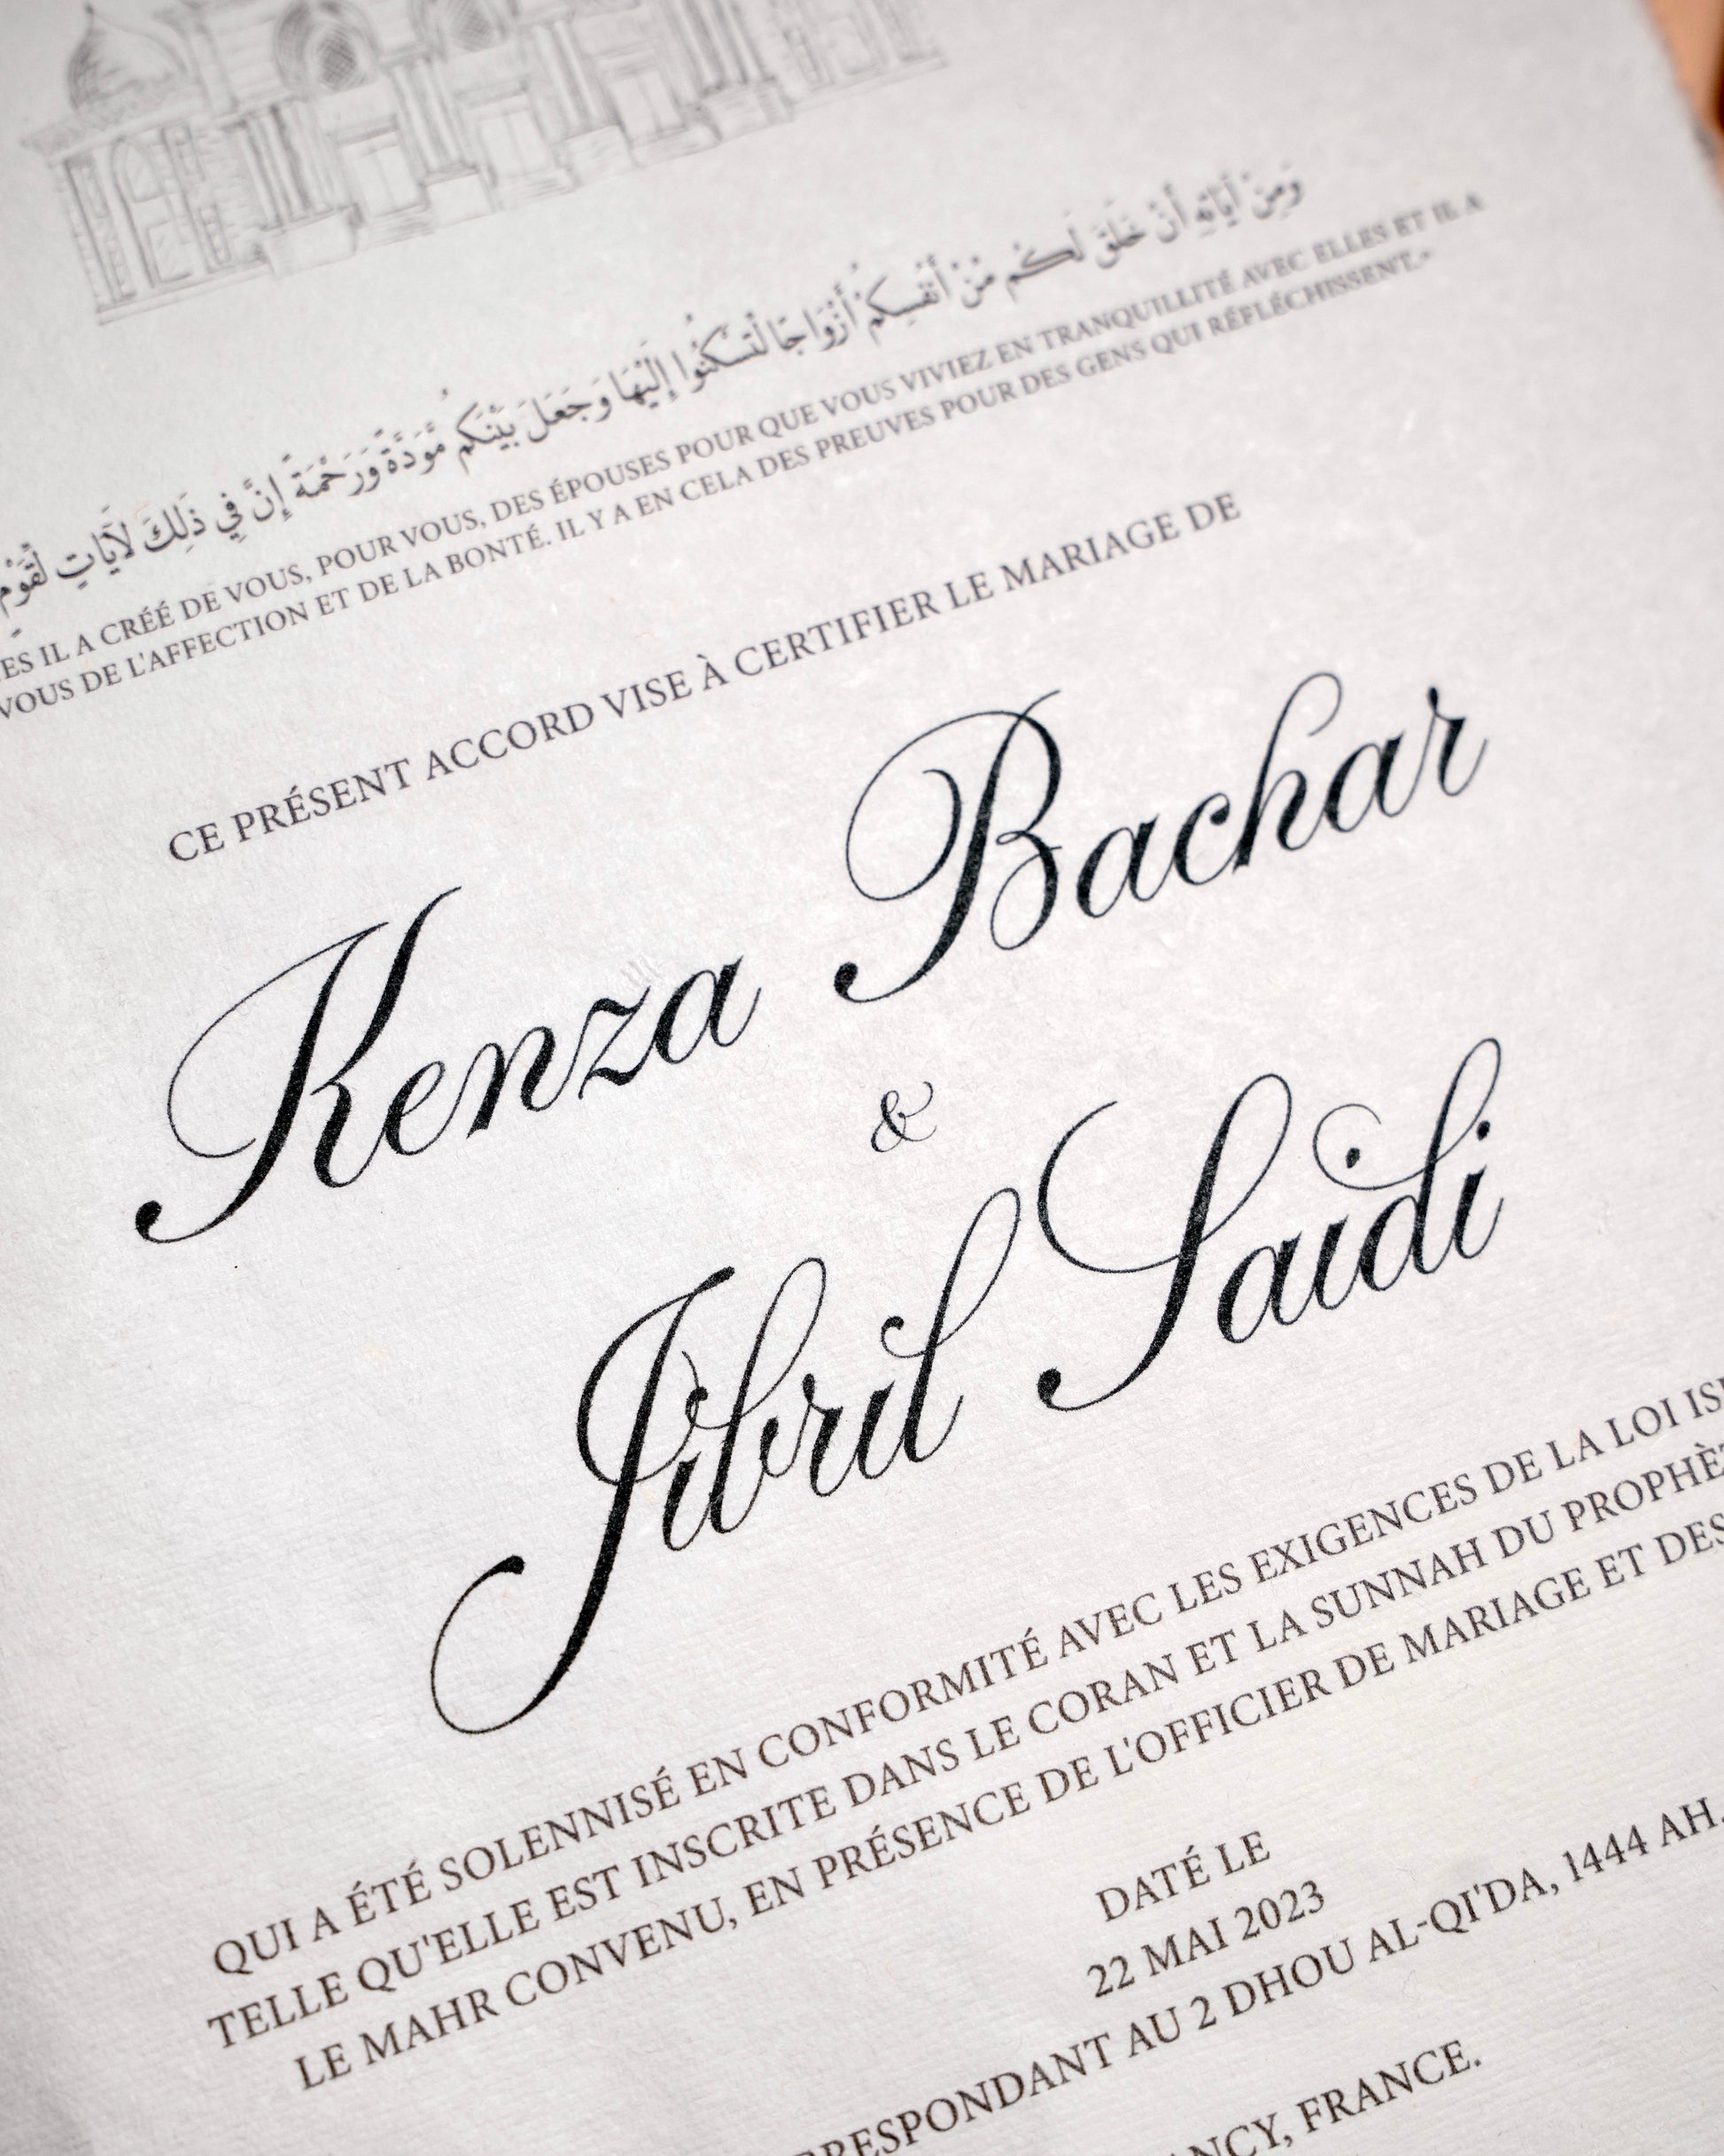 وَمِنْ آيَاتِهِ أَنْ خَلَقَ لَكُم مِّنْ أَنفُسِكُمْ أَزْوَاجًا لِّتَسْكُنُوا إِلَيْهَا وَجَعَلَ بَيْنَكُم مَّوَدَّةً وَرَحْمَةً إِنَّ فِي ذَٰلِكَ لَآيَاتٍ لِّقَوْمٍ
IL A CRÉÉ DE VOUS, POUR VOUS, DES ÉPOUSES POUR QUE VOUS VIVIEZ EN TRANQUILLITÉ AVEC ELLES ET IL A
VOUS DE L'AFFECTION ET DE LA BONTÉ. IL Y A EN CELA DES PREUVES POUR DES GENS QUI RÉFLÉCHISSENT."
CE PRÉSENT ACCORD VISE À CERTIFIER LE MARIAGE DE
Kenza Bachar
&
Jibril Saidi
QUI A ÉTÉ SOLENNISÉ EN CONFORMITÉ AVEC LES EXIGENCES DE LA LOI
TELLE QU'ELLE EST INSCRITE DANS LE CORAN ET LA SUNNAH DU
LE MAHR CONVENU, EN PRÉSENCE DE L'OFFICIER DE MARIAGE ET DES
DATÉ LE
22 MAI 2023
RESPONDANT AU 2 DHOU AL-QI'DA, 1444 AH,
NCY, FRANCE.